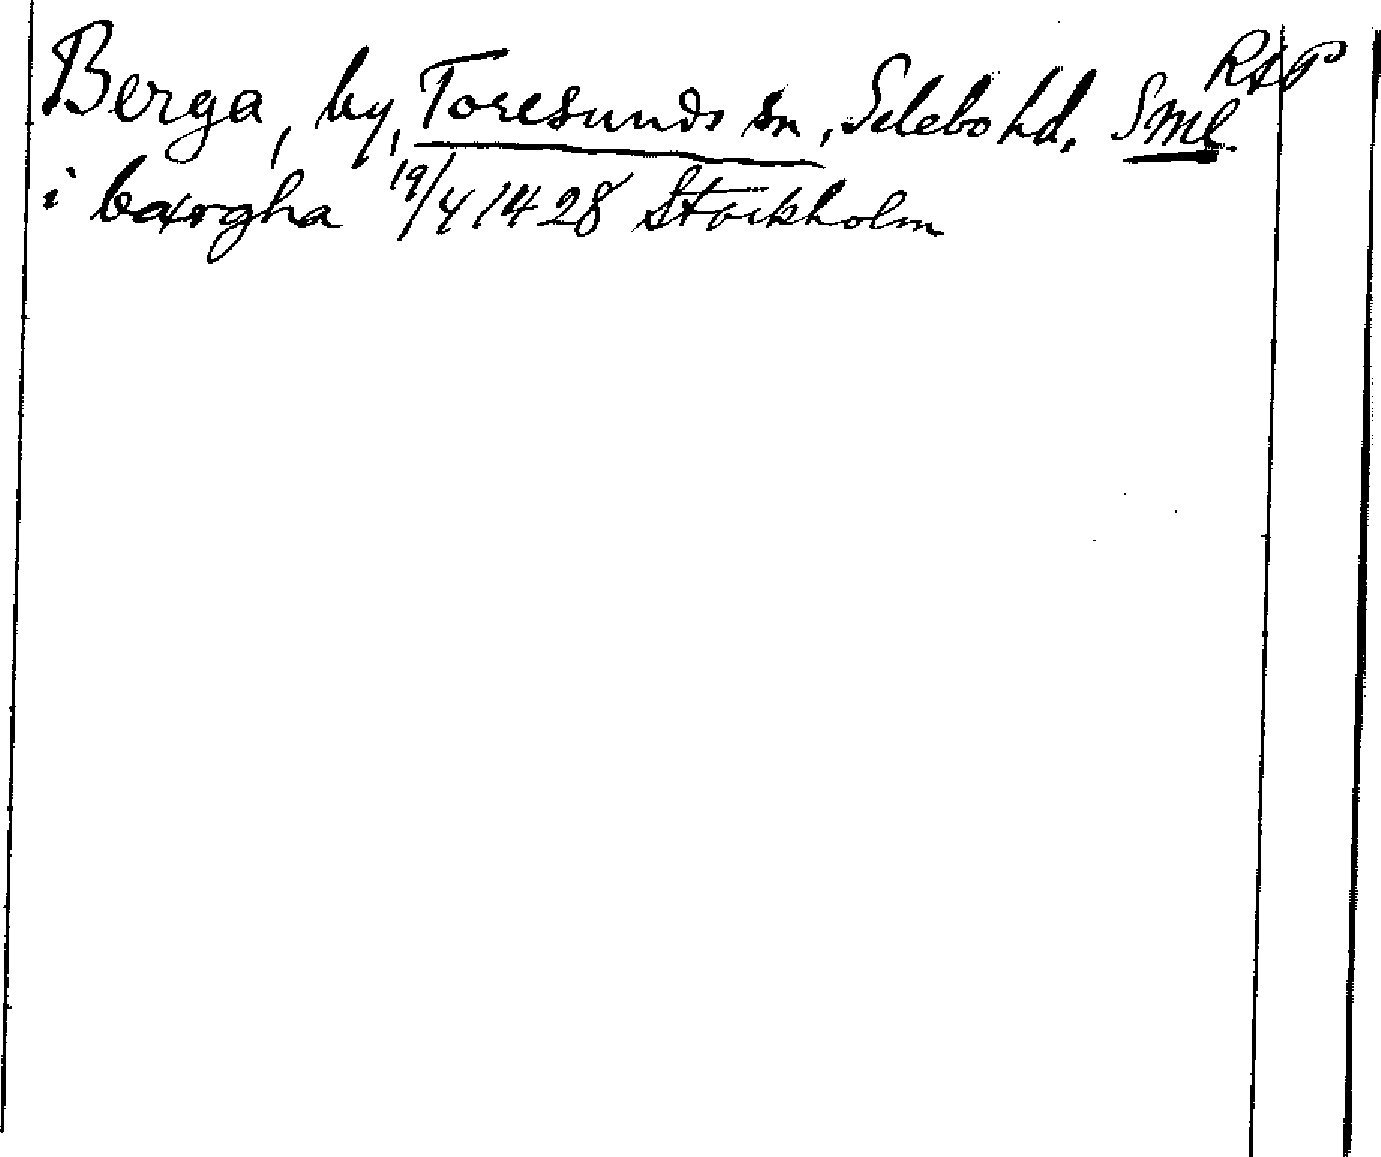 RAP
Berga, by, Toresunds sn, Selebo hd. Sml
i bærgha 19/4 1428 Stockholm